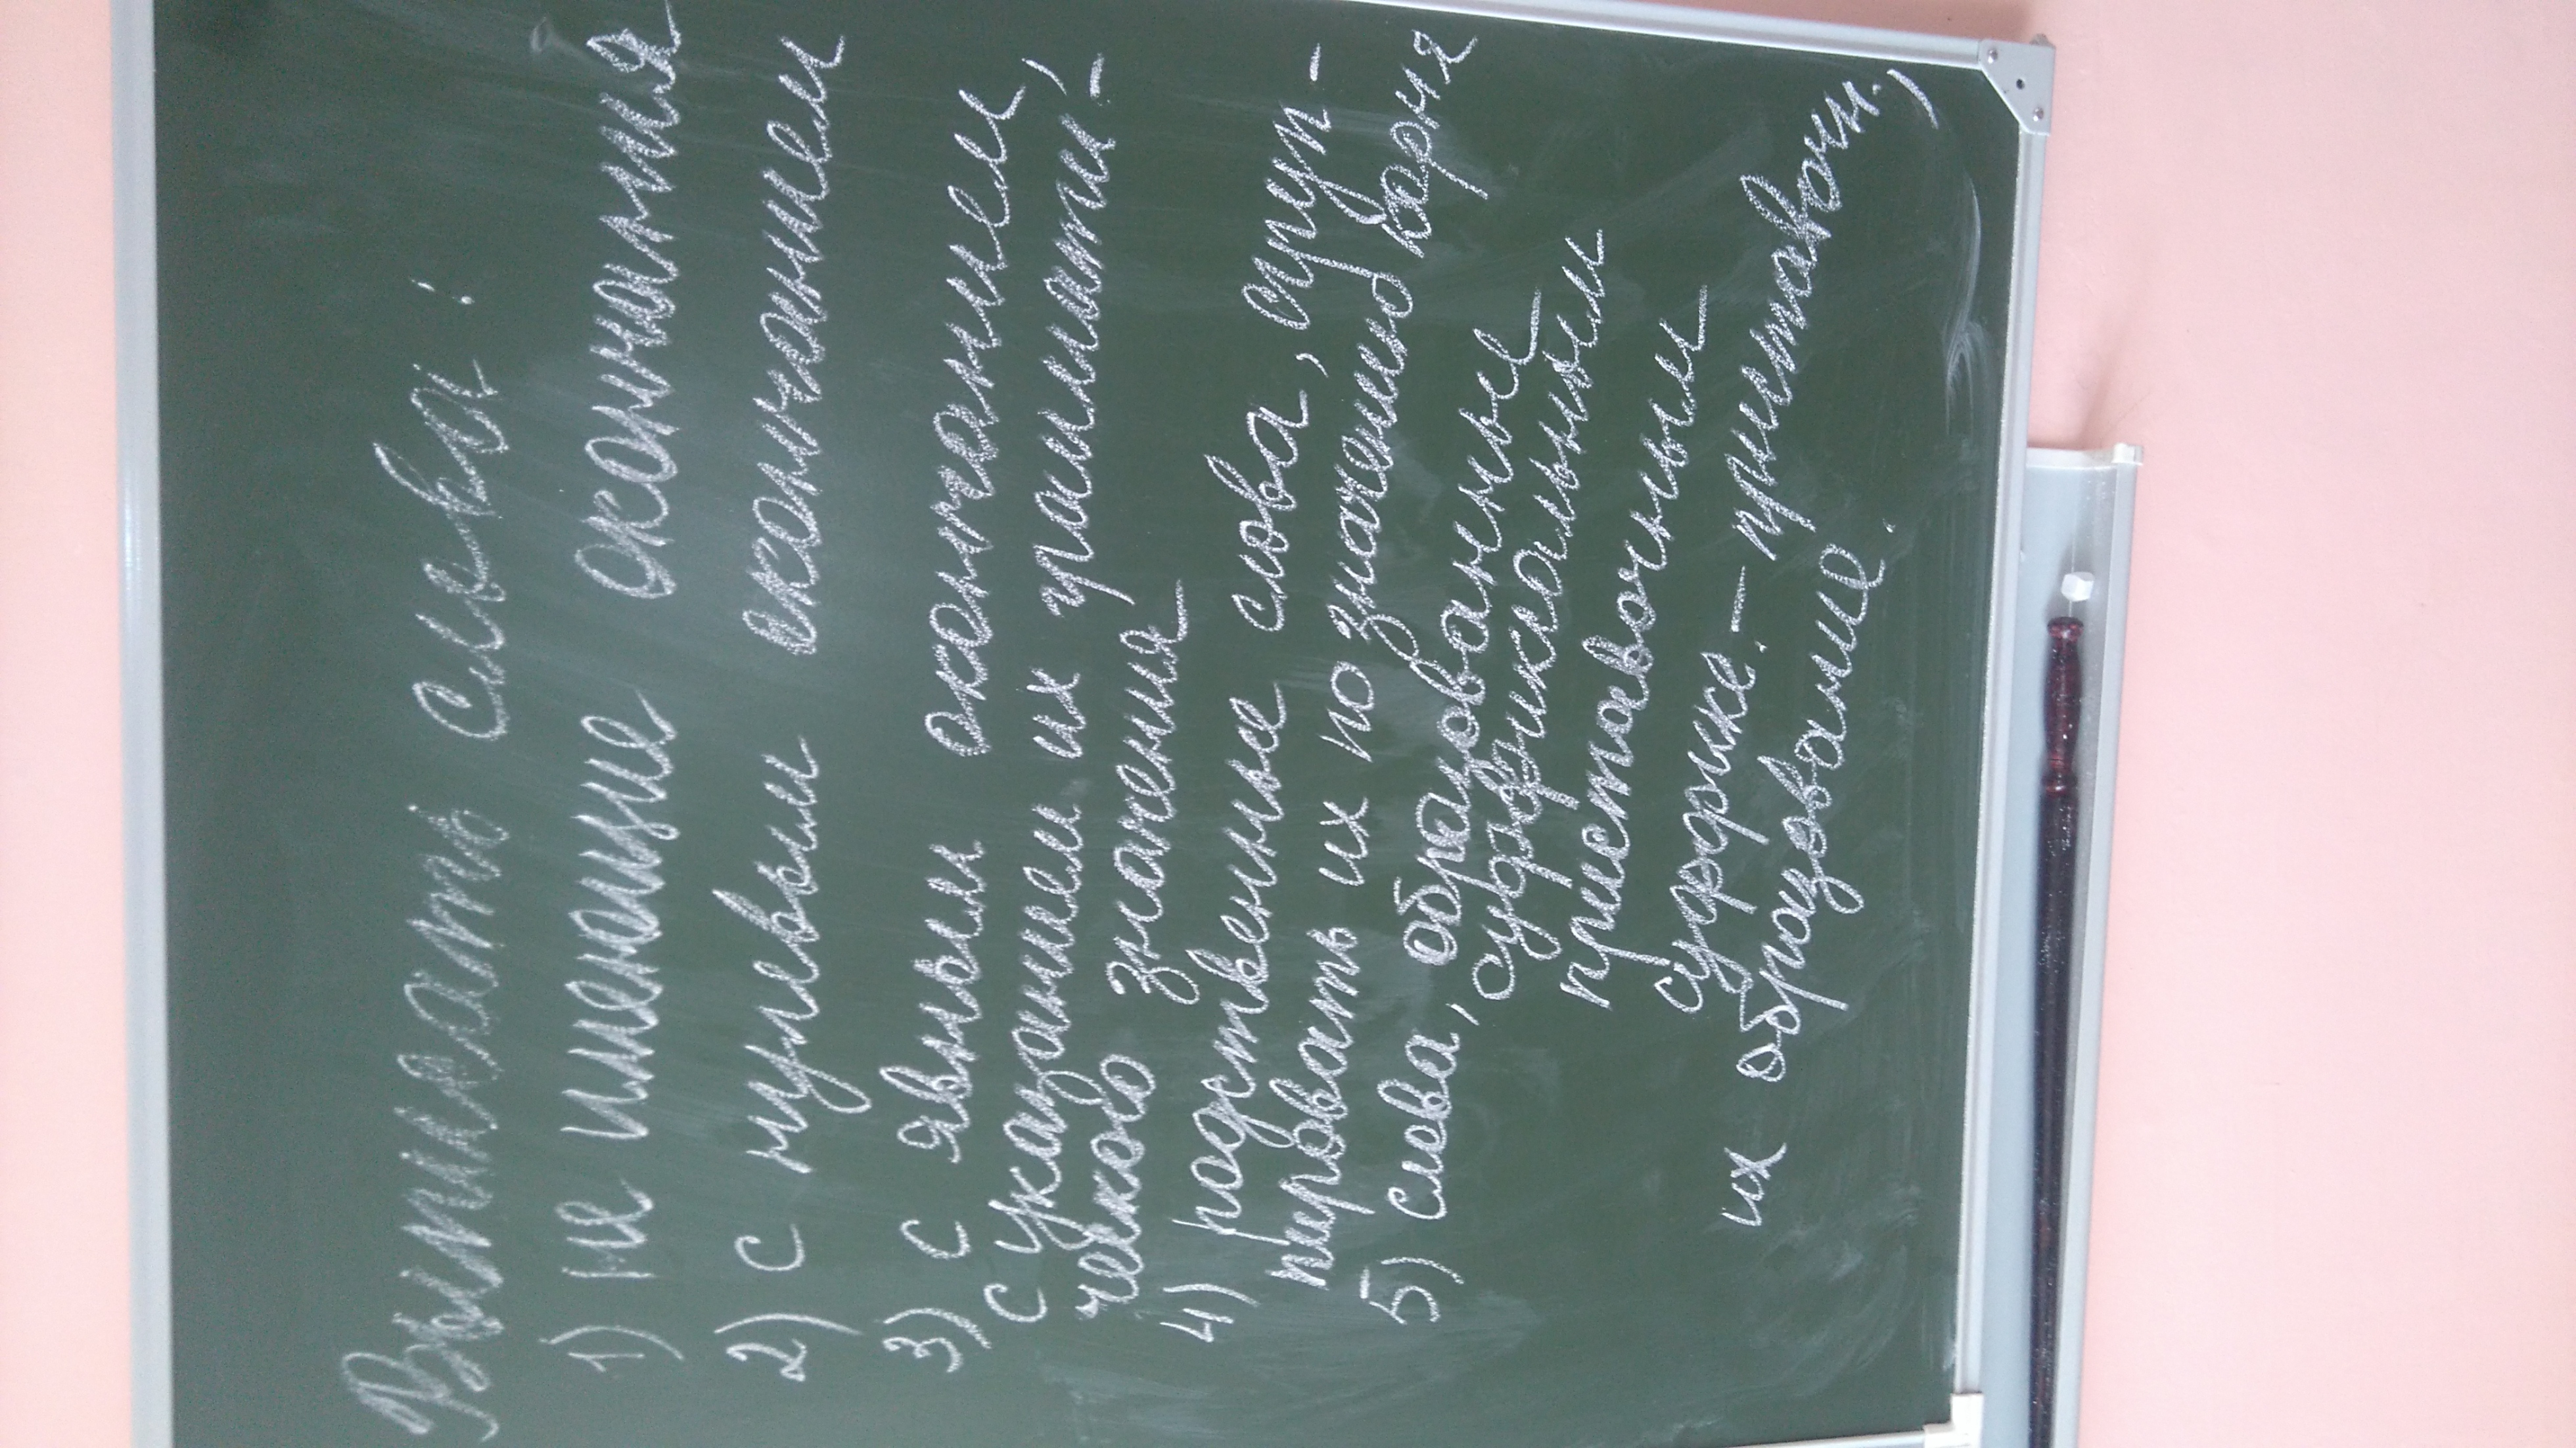 Выписать слова:
1) не имеющие окончания
2) с нулевым окончанием
3) с явным окончанием,
с указанием их граммати-
ческого значения
4) родственные слова, груп-
пировать их по значению корня
5) слова, образованные
суффиксальным
приставочным
суффикс.- приставочн.)
их образование.